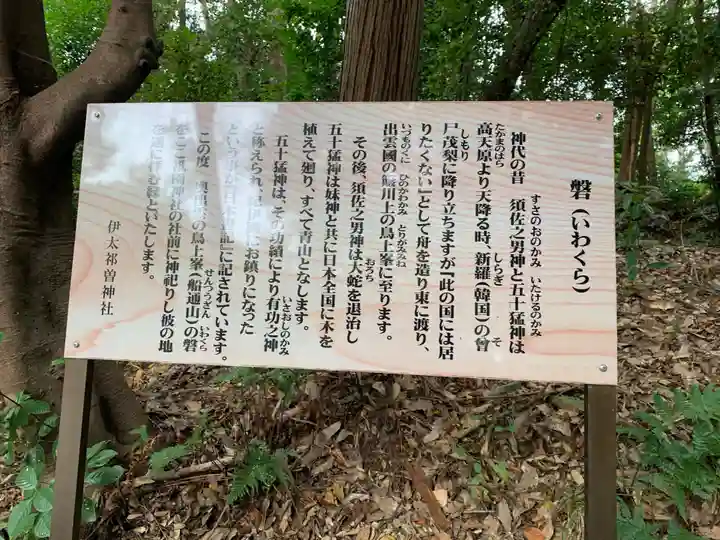 磐（いわくら）
神代の昔　須佐之男神と五十猛神は
すさのおのかみ　いたけるのかみ
高天原より天降る時、新羅（韓国）の曽
たかまのはら　しらぎ　そ
尸茂梨に降り立ちますが『此の国には居
しもり
りたくない』として舟を造り東に渡り、
出雲國の簸川上の鳥上峯に至ります。
いづものくに　ひのかわかみ　とりがみみね
その後、須佐之男神は大蛇を退治し
おろち
五十猛神は妹神と共に日本全国に木を
植えて廻り、すべて青山となします。
五十猛神は、その功績により有功之神
いさおしのかみ
と称えられ、にお鎮りになった
に記されています。
この度　の鳥上峯（船通山）の磐
せんつうざん　いわくら
神社の社前に神祀りし彼の地
といたします。
伊太祁曽神社